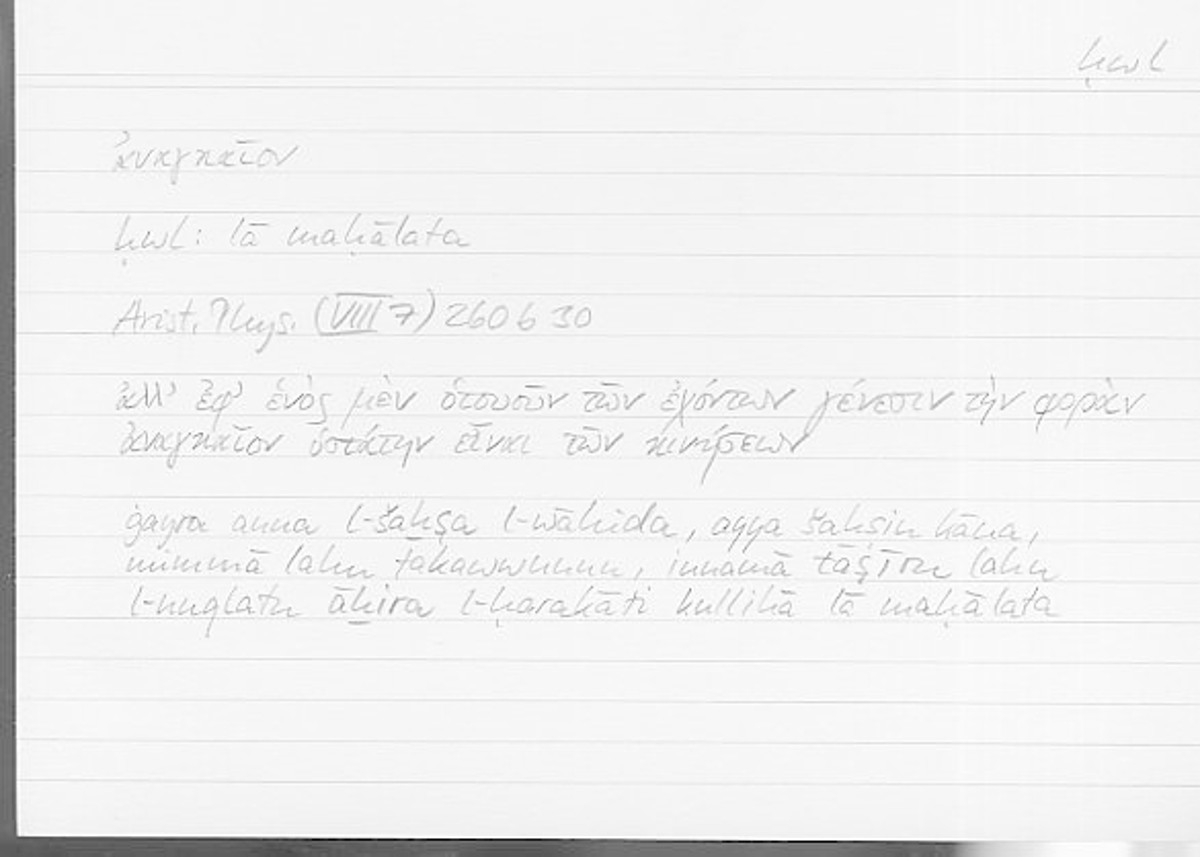 ḥwl
ἀναγκαῖον
ḥwl: lā maḥālata
Arist. Phys. (VIII 7) 260 b 30
ἀλλ’ ἐφ’ ἑνὸς μὲν ὁτουοῦν τῶν ἐχόντων γένεσιν τὴν φορὰν
ἀναγκαῖον ὑστάτην εἶναι τῶν κινήσεων
ġayra anna l-šaḫṣa l-wāḥida, ayya šaḫṣin kāna,
mimmā lahu takawwunun, innamā taṣīru lahu
l-nuqlatu āḫira l-ḥarakāti kullihā lā maḥālata